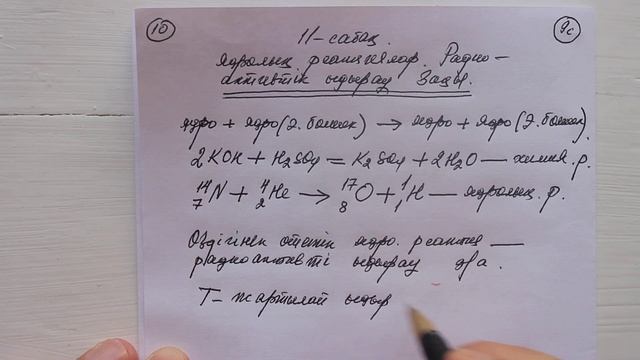 10
9c
11-сабақ.
Ядролық реакциялар. Радио-
активтік ыдырау Заңы.
ядро + ядро (э. бөлшек) → ядро + ядро (э. бөлшек).
2KOH + H₂SO₄ = K₂SO₄ + 2H₂O — химия. р.
¹⁴₇N + ⁴₂He → ¹⁷₈O + ¹₁H — ядролық. р.
Өздігінен өтетін ядро. реакция —
радиоактивті ыдырау д/а.
T - жартылай ыдыр